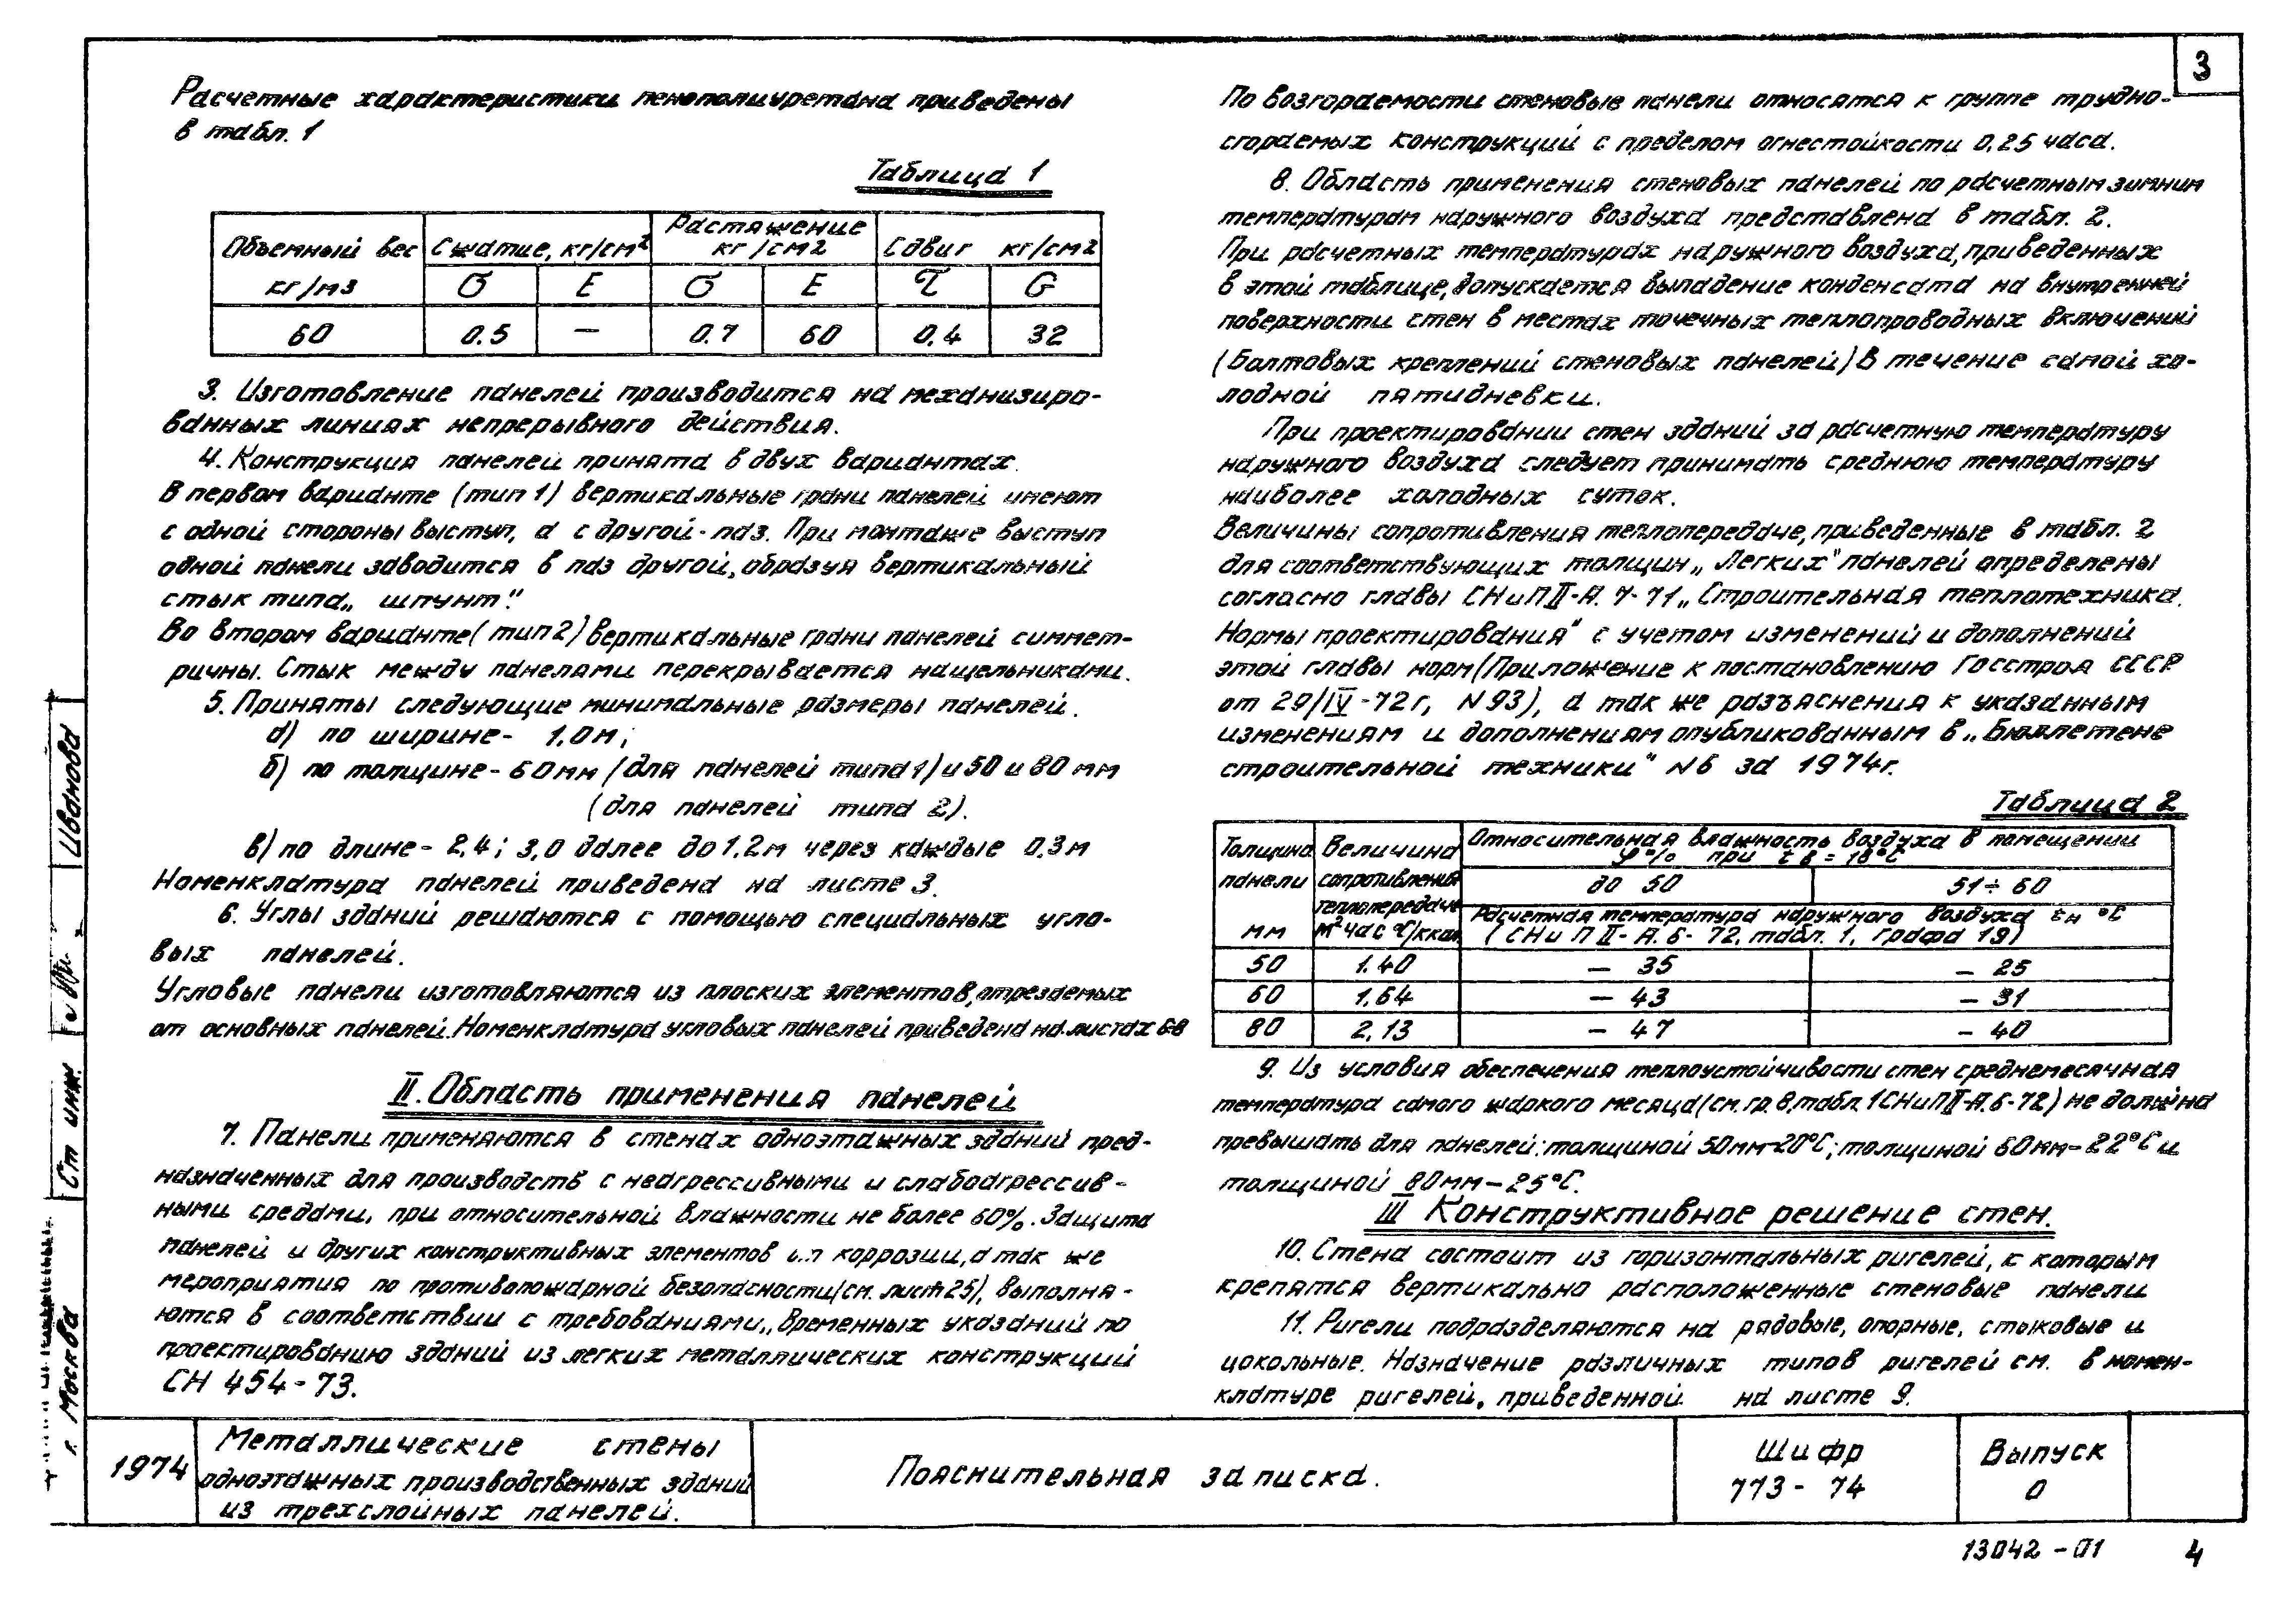 3
Расчетные характеристики пенополиуретана приведены
в табл. 1
Таблица 1
Объемный вес кг/м3 | Сжатие, кг/см2 | Растяжение кг/см2 | Сдвиг кг/см2
σ | E | σ | E | τ | G
60 | 0.5 | — | 0.7 | 60 | 0.4 | 32
3. Изготовление панелей производится на механизиро-
ванных линиях непрерывного действия.
4. Конструкция панелей принята в двух вариантах.
В первом варианте (тип 1) вертикальные грани панелей имеют
с одной стороны выступ, а с другой - паз. При монтаже выступ
одной панели заводится в паз другой, образуя вертикальный
стык типа „шпунт".
Во втором варианте (тип 2) вертикальные грани панелей симмет-
ричны. Стык между панелями перекрывается нащельниками.
5. Приняты следующие минимальные размеры панелей.
а) по ширине - 1,0 м;
б) по толщине - 60 мм (для панелей типа 1) и 50 и 80 мм
(для панелей типа 2).
в) по длине - 2,4; 3,0 далее до 1.2 м через каждые 0.3 м
Номенклатура панелей приведена на листе 3.
6. Углы зданий решаются с помощью специальных угло-
вых панелей.
Угловые панели изготовляются из плоских элементов, отрезаемых
от основных панелей. Номенклатура угловых панелей приведена на листах 6-8
II. Область применения панелей
7. Панели применяются в стенах одноэтажных зданий пред-
назначенных для производств с неагрессивными и слабоагрессив-
ными средами, при относительной влажности не более 60%. Защита
панелей и других конструктивных элементов от коррозии, а так же
мероприятия по противопожарной безопасности (см. лист 25), выполня-
ются в соответствии с требованиями „Временных указаний по
проектированию зданий из легких металлических конструкций
СН 454-73.
По возгораемости стеновые панели относятся к группе трудно-
сгораемых конструкций с пределом огнестойкости 0,25 часа.
8. Область применения стеновых панелей по расчетным зимним
температурам наружного воздуха представлена в табл. 2.
При расчетных температурах наружного воздуха, приведенных
в этой таблице, допускается выпадение конденсата на внутренней
поверхности стен в местах точечных теплопроводных включений
(болтовых креплений стеновых панелей) в течение самой хо-
лодной пятидневки.
При проектировании стен зданий за расчетную температуру
наружного воздуха следует принимать среднюю температуру
наиболее холодных суток.
Величины сопротивления теплопередаче, приведенные в табл. 2
для соответствующих толщин „Легких" панелей определены
согласно главы СНиП II-А. 7-71 „Строительная теплотехника.
Нормы проектирования" с учетом изменений и дополнений
этой главы норм (Приложение к постановлению Госстроя СССР
от 29/IV-72г, N 93), а так же разъяснения к указанным
изменениям и дополнениям опубликованным в „Бюллетене
строительной техники" N6 за 1974г.
Таблица 2
Толщина панели мм | Величина сопротивления теплопередаче м2 час °C/ккал | Относительная влажность воздуха в помещении φ % при tв = 18°C
до 50 | 51÷60
Расчетная температура наружного воздуха tн °C
(СНиП II-А.6-72, табл. 1, графа 19)
50 | 1.40 | — 35 | — 25
60 | 1,64 | — 43 | — 31
80 | 2,13 | — 47 | — 40
9. Из условия обеспечения теплоустойчивости стен среднемесячная
температура самого жаркого месяца (см. гр. 8, табл. 1 СНиП II-А.6-72) не должна
превышать для панелей: толщиной 50 мм - 20°C; толщиной 60 мм - 22°C и
толщиной 80 мм - 25°C.
III Конструктивное решение стен.
10. Стена состоит из горизонтальных ригелей, к которым
крепятся вертикально расположенные стеновые панели
11. Ригели подразделяются на рядовые, опорные, стыковые и
цокольные. Назначение различных типов ригелей см. в номен-
клатуре ригелей, приведенной на листе 9.
Иванова
Ст инж.
г. Москва
1974
Металлические стены
одноэтажных производственных зданий
из трехслойных панелей.
Пояснительная записка.
Шифр
773-74
Выпуск
0
13042-01
4